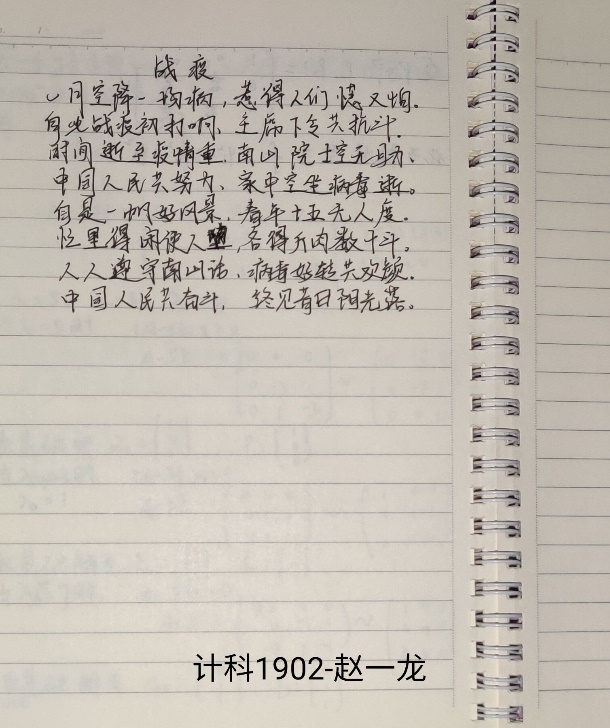 战疫
八月空降一场病，惹得人们愁又怕.
自此战疫初打响、主席下令共抗斗.
时间逝至疫情重，南山院士空无助、
中国人民共努力、家中空坐病毒逝。
自是一帆好风景，春年十五无人度。
忙里得闲使人，各得斤肉数十斗。
人人遵守南山话、病毒好转共欢颜.
中国人民共奋斗，终见昔日阳光落。
计科1902-赵一龙